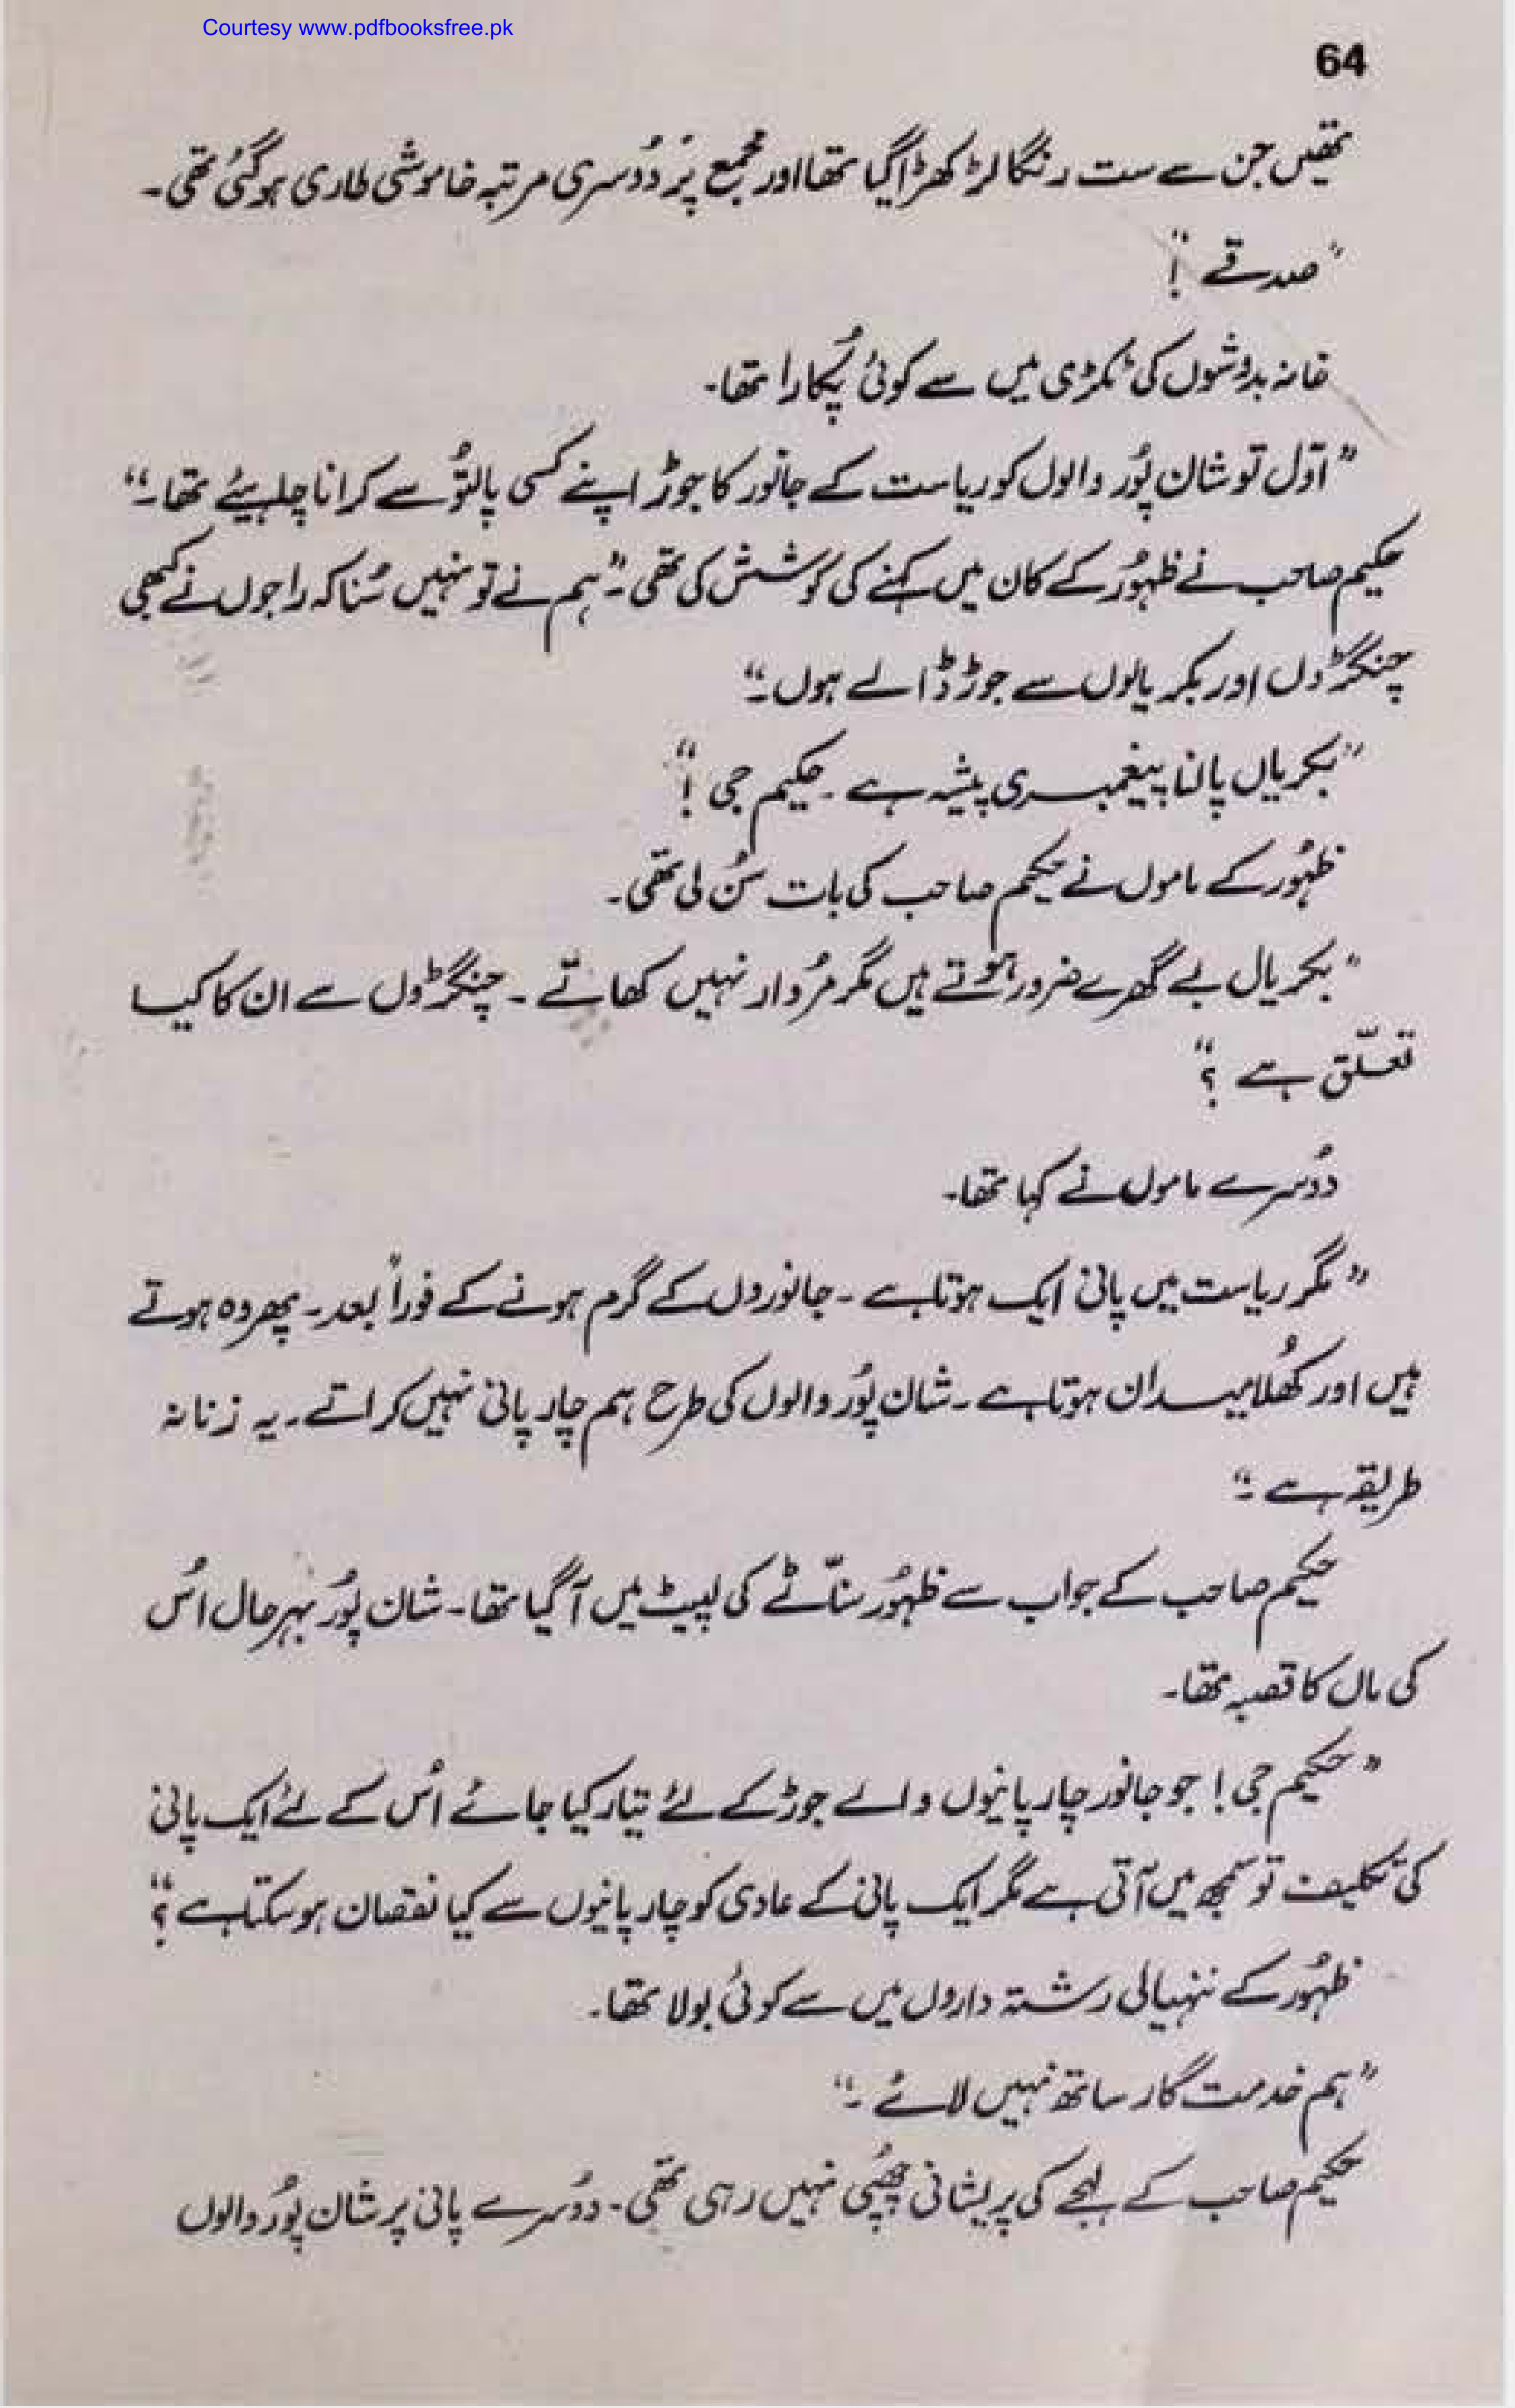 Courtesy www.pdfbooksfree.pk
64
تھیں جن سے ست رنگا لڑکھڑا گیا تھا اور مجمع پَر دُوسری مرتبہ خاموشی طاری ہوگئی تھی۔
"صدقے!"
خانہ بدوشوں کی ٹکڑی میں سے کوئی پُکارا تھا۔
"اوّل تو شان پُور والوں کو ریاست کے جانور کا جوڑ اپنے کسی پالتوُ سے کرانا چاہیئے تھا۔"
حکیم صاحب نے ظہُور کے کان میں کہنے کی کوشش کی تھی۔ "ہم نے تو نہیں سُنا کہ راجوں نے کبھی
چنگڑوں اور بکریالوں سے جوڑ ڈالے ہوں۔"
"بکریاں پالنا پیغمبری پیشہ ہے۔ حکیم جی!"
ظہُور کے ماموں نے حکیم صاحب کی بات سُن لی تھی۔
"بکریال بے گھرے ضرور ہوتے ہیں مگر مُردار نہیں کھاتے۔ چنگڑوں سے ان کا کیا
تعلّق ہے؟"
دُوسرے ماموں نے کہا تھا۔
"مگر ریاست میں پانی ایک ہوتا ہے۔ جانوروں کے گرم ہونے کے فوراً بعد۔ پھر وہ ہوتے
ہیں اور کھُلا میدان ہوتا ہے۔ شان پُور والوں کی طرح ہم چار پانی نہیں کراتے۔ یہ زنانہ
طریقہ ہے۔"
حکیم صاحب کے جواب سے ظہُور سنّاٹے کی لپیٹ میں آگیا تھا۔ شان پُور بہرحال اُس
کی ماں کا قصبہ تھا۔
"حکیم جی! جو جانور چار پانیوں والے جوڑ کے لئے تیار کیا جائے اُس کے لئے ایک پانی
کی تکلیف تو سمجھ میں آتی ہے مگر ایک پانی کے عادی کو چار پانیوں سے کیا نقصان ہوسکتا ہے؟"
ظہُور کے ننہیالی رشتہ داروں میں سے کوئی بولا تھا۔
"ہم خدمت گار ساتھ نہیں لائے۔"
حکیم صاحب کے لہجے کی پریشانی چھُپی نہیں رہی تھی۔ دُوسرے پانی پر شان پُور والوں